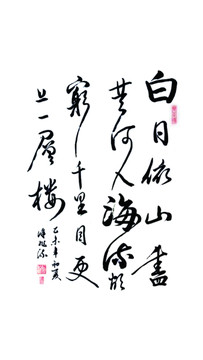 白日依山盡
黃河入海流欲
窮千里目更
上一層樓
乙未年初夏